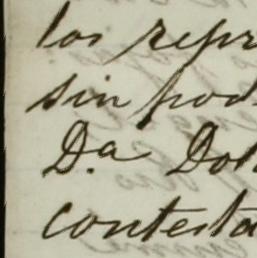 los repr
sin pod
D.a Dol
contesta